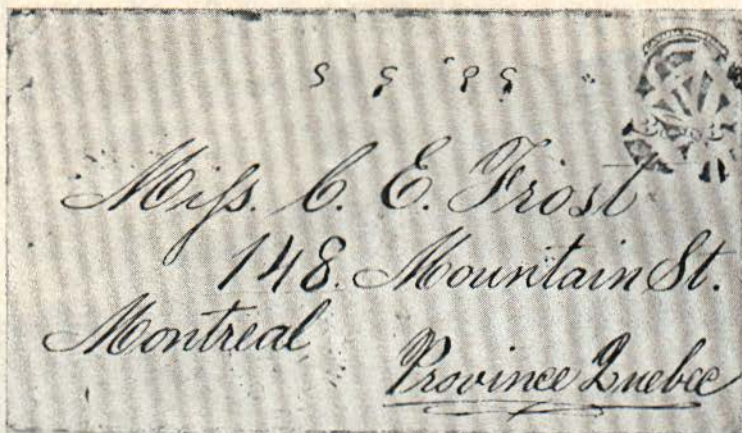 Miss. C. E. Frost
148. Mountain St.
Montreal
Province Quebec